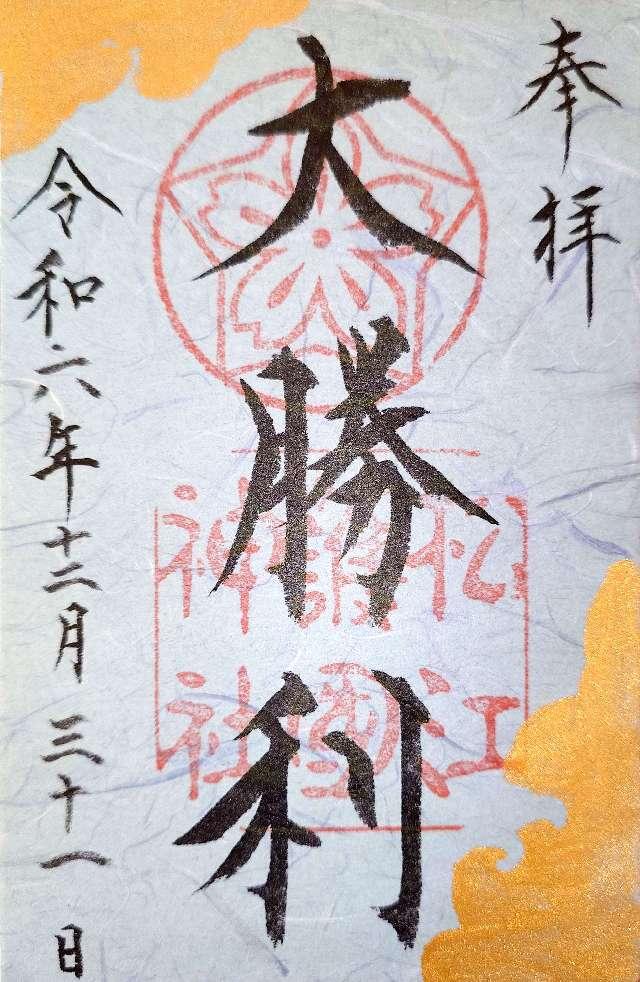 奉拝
大勝利
松江
護國
神社
令和六年十二月三十一日